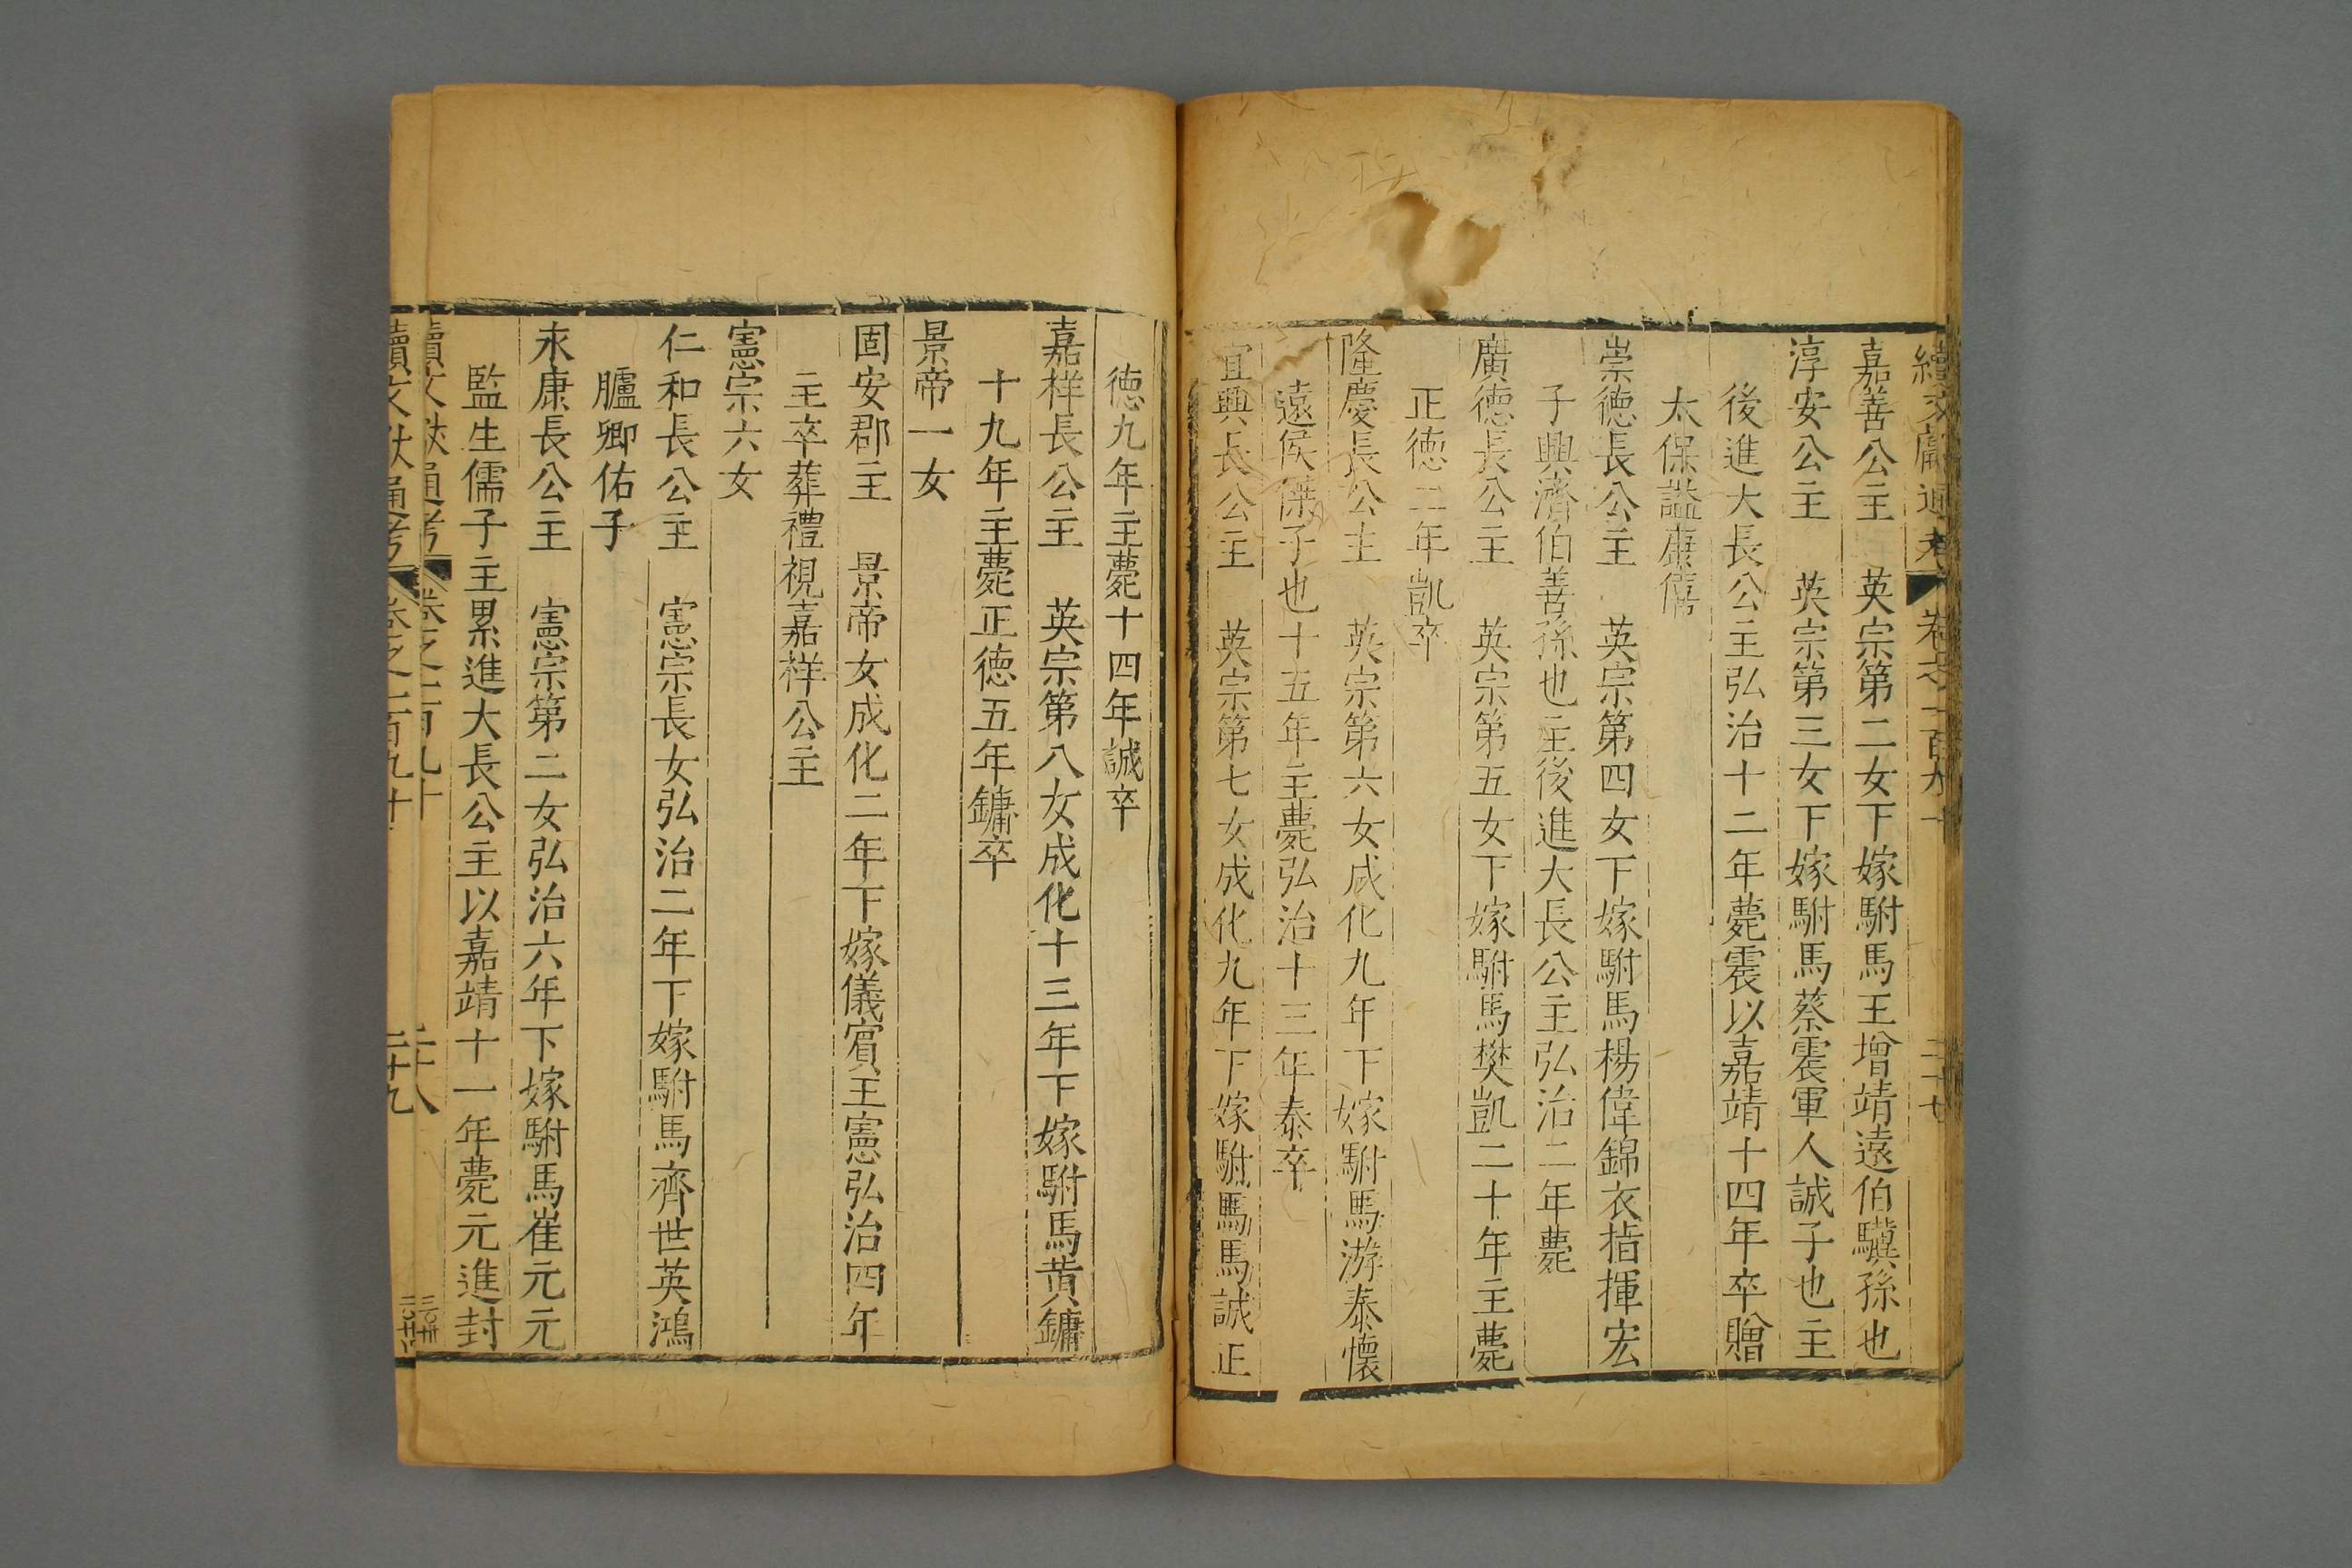 續文獻通考 卷之一百九十 二十七
嘉善公主 英宗第二女下嫁駙馬王增靖遠伯驥孫也
淳安公主 英宗第三女下嫁駙馬蔡震軍人誠子也主
後進大長公主弘治十二年薨震以嘉靖十四年卒贈
太保謚康僖
崇德長公主 英宗第四女下嫁駙馬楊偉錦衣指揮宏
子興濟伯善孫也主後進大長公主弘治二年薨
廣德長公主 英宗第五女下嫁駙馬樊凱二十年主薨
正德二年凱卒
隆慶長公主 英宗第六女成化九年下嫁駙馬游泰懷
遠侯傑子也十五年主薨弘治十三年泰卒
宜興長公主 英宗第七女成化九年下嫁駙馬馬誠正
德九年主薨十四年誠卒
嘉祥長公主 英宗第八女成化十三年下嫁駙馬黄鏞
十九年主薨正德五年鏞卒
景帝一女
固安郡主 景帝女成化二年下嫁儀賓王憲弘治四年
主卒葬禮視嘉祥公主
憲宗六女
仁和長公主 憲宗長女弘治二年下嫁駙馬齊世英鴻
臚卿佑子
永康長公主 憲宗第二女弘治六年下嫁駙馬崔元元
監生儒子主累進大長公主以嘉靖十一年薨元進封
續文獻通考 卷之一百九十 二十八
續文獻通考 卷之一百九十 二十九